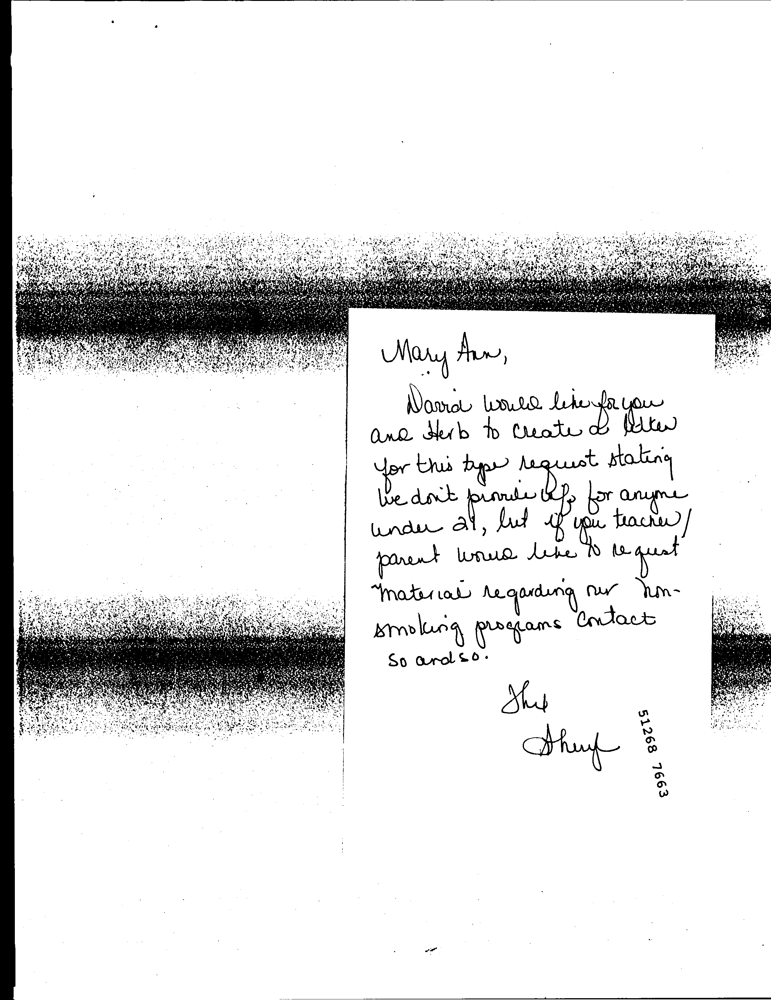 Mary Ann,
David would like for you
and Herb to create a letter
for this type request stating
we don't provide info for anyone
under 21, but if you teacher/
parent would like to request
material regarding our non-
smoking programs contact
so and so.
Thx
Sheryl
51268 7663